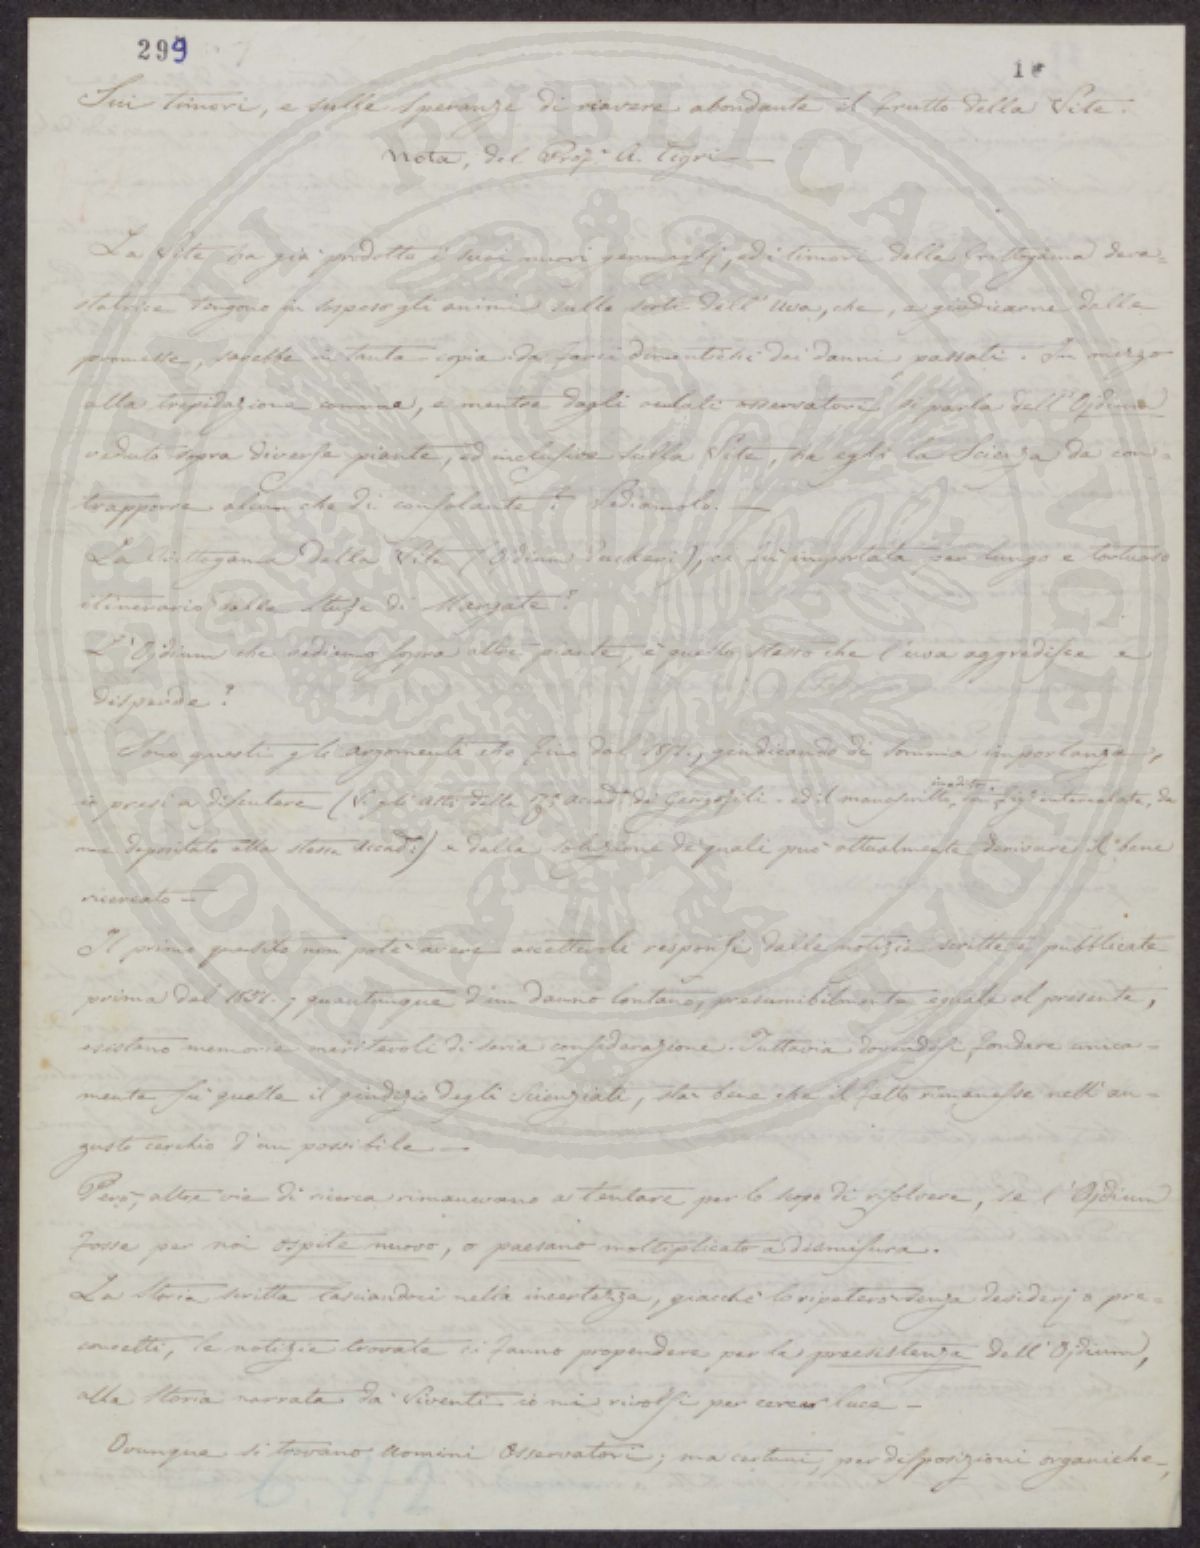 299
1
Sui timori, e sulle speranze di riavere abondante il frutto della Vite.
Nota, del Prof.e A. Tigri
La Vite ha già prodotto i suoi nuovi germoglj, ed i timori della Crittogama deva=
statrice tengono in sospeso gli animi sulla sorte dell'Uva, che, a giudicarne dalle
promesse, sarebbe in tanta copia da farci dimentichi dei danni passati. In mezzo
alla trepidazione comune, e mentre dagli oculati osservatori si parla dell'Ojdium
veduto sopra diverse piante, ed inclusive sulla Vite, ha egli la Scienza da con=
trapporre alcun che di consolante? Vediamolo.
La Crittogama della Vite (Oidium Tuckeri), ci fu importata per lungo e tortuoso
itinerario dalle stufe di Margate?
L'Ojdium che vediamo sopra altre piante, è quello stesso che l'uva aggredisce e
disperde?
Sono questi gli argomenti che fino dal 1851., giudicando di somma importanza,
io presi a discutere (V. gli Atti della R. Accad. dei Georgofili. ed il manoscritto inedito, con fig. intercalate, da
me depositato alla stessa Accad.) e dalla soluzione de' quali può attualmente derivare il bene
ricercato —
Il primo quesito non potè avere accettevoli responsi dalle notizie scritte e pubblicate
prima del 1851.; quantunque d'un danno lontano, presumibilmente eguale al presente,
esistano memorie meritevoli di seria considerazione. Tuttavia dovendosi fondare unica=
mente su quelle il giudizio degli Scienziati, sta bene che il fatto rimanesse nell'an=
gusto cerchio d'un possibile —
Però, altre vie di ricerca rimanevano a tentare per lo scopo di risolvere, se l'Ojdium
fosse per noi ospite nuovo, o paesano moltiplicato a dismisura.
La Storia scritta lasciandoci nella incertezza, giacchè lo ripeterò senza desiderj o pre=
concetti, le notizie trovate ci fanno propendere per la preesistenza dell'Ojdium,
alla Storia narrata da' Viventi io mi rivolsi per cercar luce —
Ovunque si trovano Uomini Osservatori; ma certuni, per disposizioni organiche,